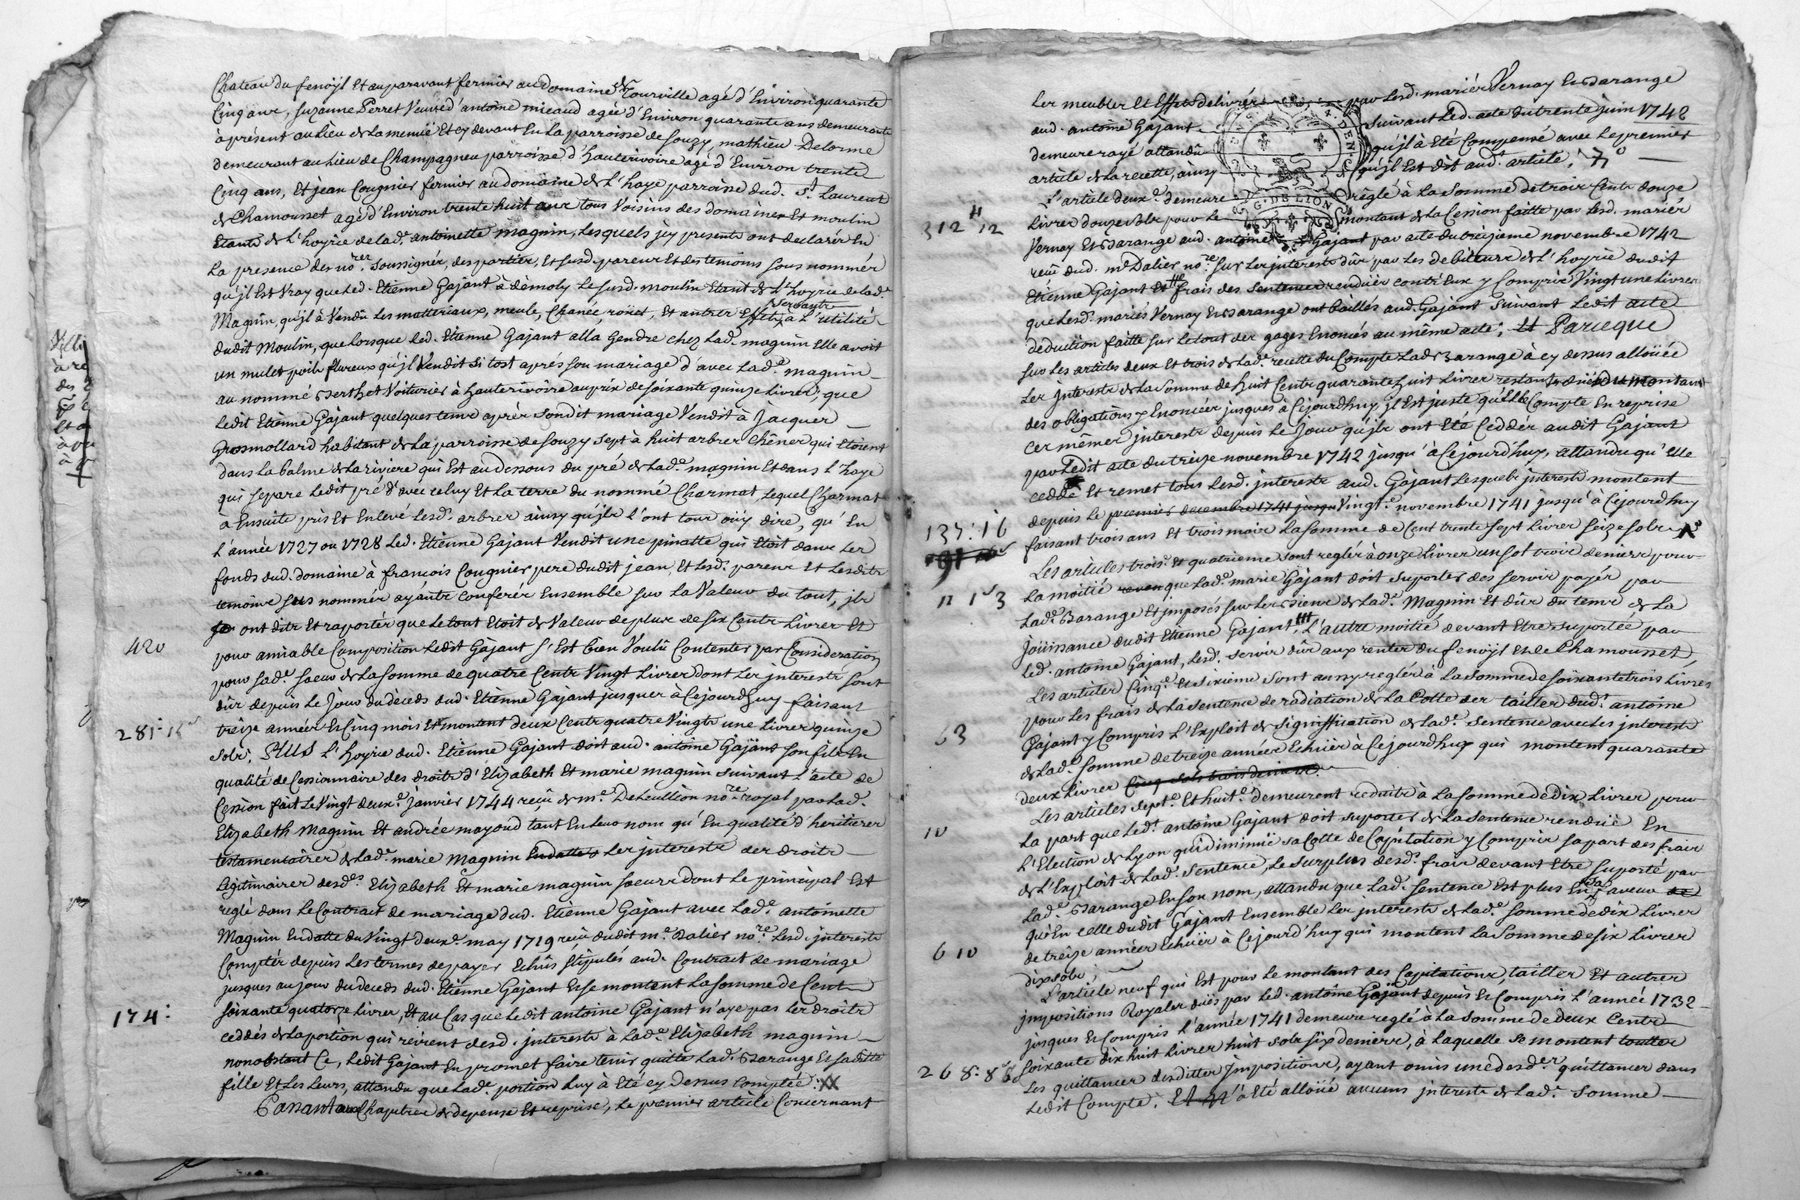 Chateau du fenoÿl Et auparavant fermier au domaine de Tourville agé d'Environ quarante
Cinq ans, Suzanne Perret Veuve d'antoine micaud agée d'Environ quarante ans demeurante
à présent au Lieu de La menüe Et cy devant En La parroisse de Souzy, mathieu Delorme
demeurant au Lieu de Champagneu parroisse d'hauterivoire agé d'Environ trente
Cinq ans, Et jean Cougnier fermier au domaine de L'haye parroisse dud. St Laurent
de Chamousset agé d'Environ trente huit ans tous Voisins des domaines Et moulin
Etants de L'hoyrie de lad.e antoinette magnin, Lesquels icy presents ont declarés En
La presence des no.res soussignés, des parties, Et susd. pareux Et des temoins sous nommés
qu'il Est Vray que Led. Etienne Gajant à démoly Le susd. moulin Etant de L'hoyrie de lad.e
Magnin, qu'il à Vendu Les matteriaux, meule, Chanée roüet, Et autres Effets servants à L'utilité
dudit Moulin, que Lorsque Led. Etienne Gajant alla Gendre chez Lad.e magnin Elle avoit
un mulet poils flureux qu'il Vendit si tost aprés son mariage d'avec Lad.e magnin
au nommé Berthot Voiturier à hauterivoire au prix de soixante quinze Livres, que
Ledit Etienne Gajant quelques tems aprés sondit mariage Vendit à Jacques
Grosmollard habitant de La parroisse de Souzy sept à huit arbres chênes qui Etoient
dans La balme de La riviere qui Est au dessous du pré de Lad.e magnin Et dans L'haye
qui separe Ledit pré d'avec celuy Et La terre du nommé Charmat Lequel Charmat
a Ensuite pris Et Enlevé Lesd. arbres ainsy qu'ils L'ont tous oüy dire, qu'En
L'année 1727 ou 1728 Led. Etienne Gajant Vendit une pinatte qui Etoit dans Les
fonds dud. domaine à françois Cougnier pere dudit jean, Et Lesd. pareux Et Lesdits
temoins sus nommés ayants conferés Ensemble sur La Valeur du tout, ils
ont dits Et raportés que Le tout Etoit de Valeur de plus de Six Cents Livres Et
420
pour amiable Composition Ledit Gajant s'Est bien Voulu Contenter par Consideration
pour sad.e soeur de La somme de quatre Cents Vingt Livres dont Les interests sont
dûs depuis Le Jour du deceds dud. Etienne Gajant jusques à Cejourd'huy faisant
treize années Et Cinq mois Et montent deux Cents quatre Vingts une Livres quinze
281 15
sols; Plus L'hoyrie dud. Etienne Gajant doit aud. antoine Gajant son fils En
qualité de Cessionnaire des droits d'Elizabeth Et marie magnin suivant L'acte de
Cession fait Le Vingt deux.e Janvier 1744 reçu de m.e Dehcullion no.re royal par Lad.
Elizabeth Magnin Et andrée mayoud tant En Leur nom qu'En qualité d'heritieres
testamentaires de Lad.e marie Magnin Les interests des droits
Legitimaires desd.es Elizabeth Et marie magnin soeurs dont Le principal Est
reglé dans Le Contract de mariage dud. Etienne Gajant avec Lad.e antoinette
Magnin En datte du Vingt deux.e may 1719 reçu dudit m.e Dalier no.re Lesd. interests
Comptés depuis Les termes de payer Echûs stipulés aud. Contract de mariage
jusques au jour du deceds dud. Etienne Gajant Et se montent La somme de Cent
174:
soixante quatorze Livres, Et au Cas que Ledit antoine Gajant n'aye pas Les droits
ceddés de La portion qui revient desd. interests à Lad.e Elizabeth magnin
nonobstant Ce, Ledit Gajant En promet faire tenir quitte Lad. Barange Et sa ditte
fille Et Les Leurs, attendu que Lad.e portion Luy à Eté cy dessus Comptée: XX
Passant aux Chapitres de depense Et reprise, Le premier article Concernant
Les meubles Et Effets delivrés par Lesd. mariés Vernay Et Barange
aud. antoine Gajant suivant Led. acte du trente juin 1742
demeure rayé attendu qu'il à Eté Compensé avec Le premier
article de La recette, ainsy qu'il Est dit aud. article, 7, 0
L'article deux.e demeure reglé à La Somme de trois Cents douze
312 12
Livres douze sols pour Le montant de La Cession faitte par Lesd. mariés
Vernay Et Barange aud. antoine Gajant par acte du treizieme novembre 1742
reçu dud. m.e Dalier no.re sur Les interests dûs par Les debiteurs de L'hoyrie dudit
Etienne Gajant Et frais des sentences rendües contr'Eux y Compris Vingt une Livres
que Lesd. mariés Vernay Et Barange ont baillés aud. Gajant suivant Ledit acte
deduction faitte sur Le tout des gages Enoncés au même acte; Et Parceque
sur Les articles deux Et trois de Lad.e recette du Compte Lad. Barange à cy dessus alloüée
Les interests de La somme de huit Cents quarante huit Livres restants du montant
des obligations y Enoncées jusques à Cejourd'huy, il Est juste qu'Elle Compte En reprise
ces mêmes interests depuis Le Jour qu'ils ont Eté Ceddés audit Gajant
par Ledit acte du treize novembre 1742 jusqu'à Cejourd'huy, attendu qu'elle
cedde Et remet tous Lesd. interests aud. Gajant Lesquels interests montent
depuis le premier decembre 1741 jusqu Vingt.e novembre 1741 jusqu'à Cejourd'huy
137: 16
faisant trois ans Et trois mois La somme de Cent trente sept Livres seize sols
Les articles trois.e Et quatrieme sont reglés à onze Livres un sol trois deniers pour
11 1 3
La moitié que Lad.e marie Gajant doit suporter des servis payés par
Lad.e Barange Et imposés sur Les biens de Lad.e Magnin Et dûs du tems de La
joüissance dudit Etienne Gajant, L'autre moitié devant Etre suportée par
Led. antoine Gajant, Lesd. servis dûs aux rentes du fenoÿl Et de Chamousset
Les articles Cinq.e Et sixiéme sont aussy reglés à La somme de soixante trois Livres
63
pour Les frais de La sentence de radiation de La Cotte des tailles dud. antoine
Gajant y Compris L'Exploit de signiffication de Lad.e sentence avec Les interests
de Lad.e somme de treize années Echües à Cejourd'huy qui montent quarante
deux Livres Cinq sols trois deniers
Les articles sept.e Et huit.e demeurent reduits à La somme de Dix Livres pour
10
La part que Led. antoine Gajant doit suporter de La sentence rendüe En
L'Election de Lyon qui diminüe sa Cotte de Capitation y Compris sa part des frais
de L'Exploit de Lad.e sentence, Le surplus desd. frais devant Etre suporté par
Lad.e Barange En son nom, attendu que Lad.e sentence Est plus En sa faveur
qu'En celle dudit Gajant Ensemble Les interests de Lad.e somme de dix Livres
6 10
de treize années Echües à Cejourd'huy qui montent La somme de six Livres
dix sols;
L'article neuf qui Est pour Le montant des Capitations, tailles Et autres
impositions Royales dües par Led. antoine Gajant depuis Et Compris L'année 1732
jusques Et Compris L'année 1741 demeure reglé à La somme de deux Cents
268: 8 6
soixante dix huit Livres huit sols six deniers, à Laquelle se montent touttes
Les quittances desdittes impositions, ayant omis une desd.es quittances dans
Ledit Compte, Et n'à Eté alloüé aucuns interests de Lad.e somme